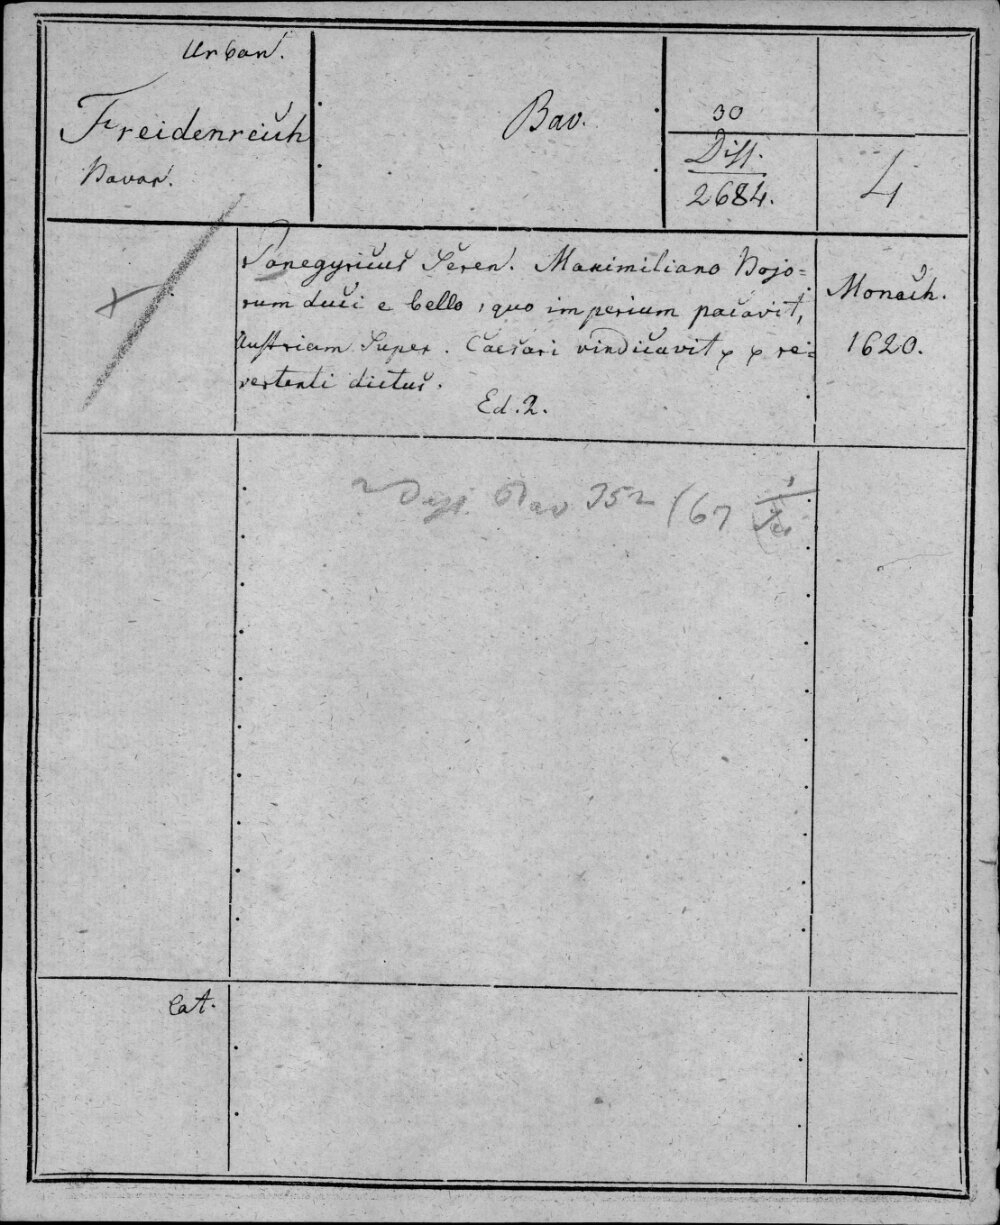 Urban.
Freidenreich
Bavar.
Bav.
30
Diss.
2684.
4
Panegyricus Seren. Maximiliano Bojo=
rum duci e bello, quo imperium pacavit,
Austriam Super. Caesari vindicavit re=
vertenti dictus.
Ed. 2.
Monach.
1620.
Diss. Bav 352 (67
Cat.